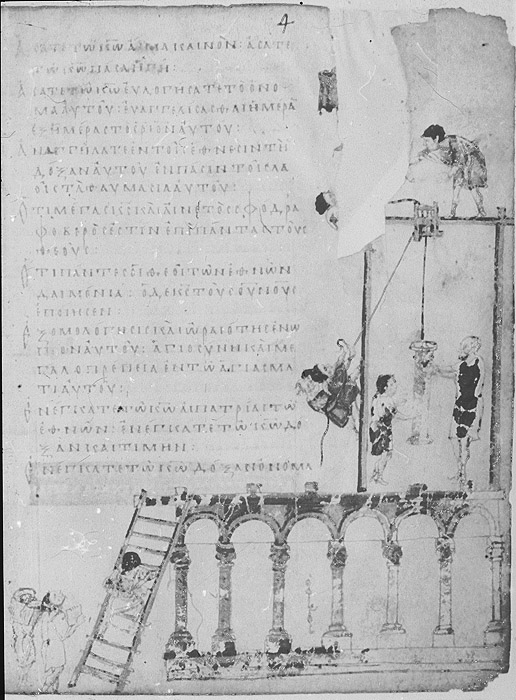 4
ΑΣΑΤΕ ΤΩ ΚΩ ΑΣΜΑ ΚΑΙΝΟΝ: ΑΣΑΤΕ
ΤΩ ΚΩ ΠΑΣΑ Η ΓΗ:
ΑΣΑΤΕ ΤΩ ΚΩ ΕΥΛΟΓΗΣΑΤΕ ΤΟ ΟΝΟ
ΜΑ ΑΥΤΟΥ: ΕΥΑΓΓΕΛΙΣΑΣΘΑΙ ΗΜΕΡΑ
ΕΞ ΗΜΕΡΑΣ ΤΟ ΣΡΙΟΝ ΑΥΤΟΥ:
ΑΝΑΓΓΗΛΑΤΕ ΕΝ ΤΟΙΣ ΕΘΝΕΣΙΝ ΤΗ
ΔΟΞΑΝ ΑΥΤΟΥ ΕΝ ΠΑΣΙΝ ΤΟΙΣ ΛΑ
ΟΙΣ ΤΑ ΘΑΥΜΑΣΙΑ ΑΥΤΟΥ:
ΟΤΙ ΜΕΓΑΣ ΚΣ ΚΑΙ ΑΙΝΕΤΟΣ ΣΦΟΔΡΑ
ΦΟΒΕΡΟΣ ΕΣΤΙΝ ΕΠΙ ΠΑΝΤΑΣ ΤΟΥΣ
ΘΕΟΥΣ:
ΟΤΙ ΠΑΝΤΕΣ ΟΙ ΘΕΟΙ ΤΩΝ ΕΘΝΩΝ
ΔΑΙΜΟΝΙΑ: Ο ΔΕ ΚΣ ΤΟΥΣ ΟΥΝΟΥΣ
ΕΠΟΙΗΣΕΝ:
ΕΞΟΜΟΛΟΓΗΣΙΣ ΚΑΙ ΩΡΑΙΟΤΗΣ ΕΝΩ
ΠΙΟΝ ΑΥΤΟΥ: ΑΓΙΟΣΥΝΗ ΚΑΙ ΜΕ
ΓΑΛΟΠΡΕΠΕΙΑ ΕΝ ΤΩ ΑΓΙΑΣΜΑ
ΤΙ ΑΥΤΟΥ:
ΕΝΕΓΚΑΤΕ ΤΩ ΚΩ ΑΙ ΠΑΤΡΙΑΙ ΤΩ
ΕΘΝΩΝ: ΕΝΕΓΚΑΤΕ ΤΩ ΚΩ ΔΟ
ΞΑΝ ΚΑΙ ΤΙΜΗΝ:
ΕΝΕΓΚΑΤΕ ΤΩ ΚΩ ΔΟΞΑΝ ΟΝΟΜΑ